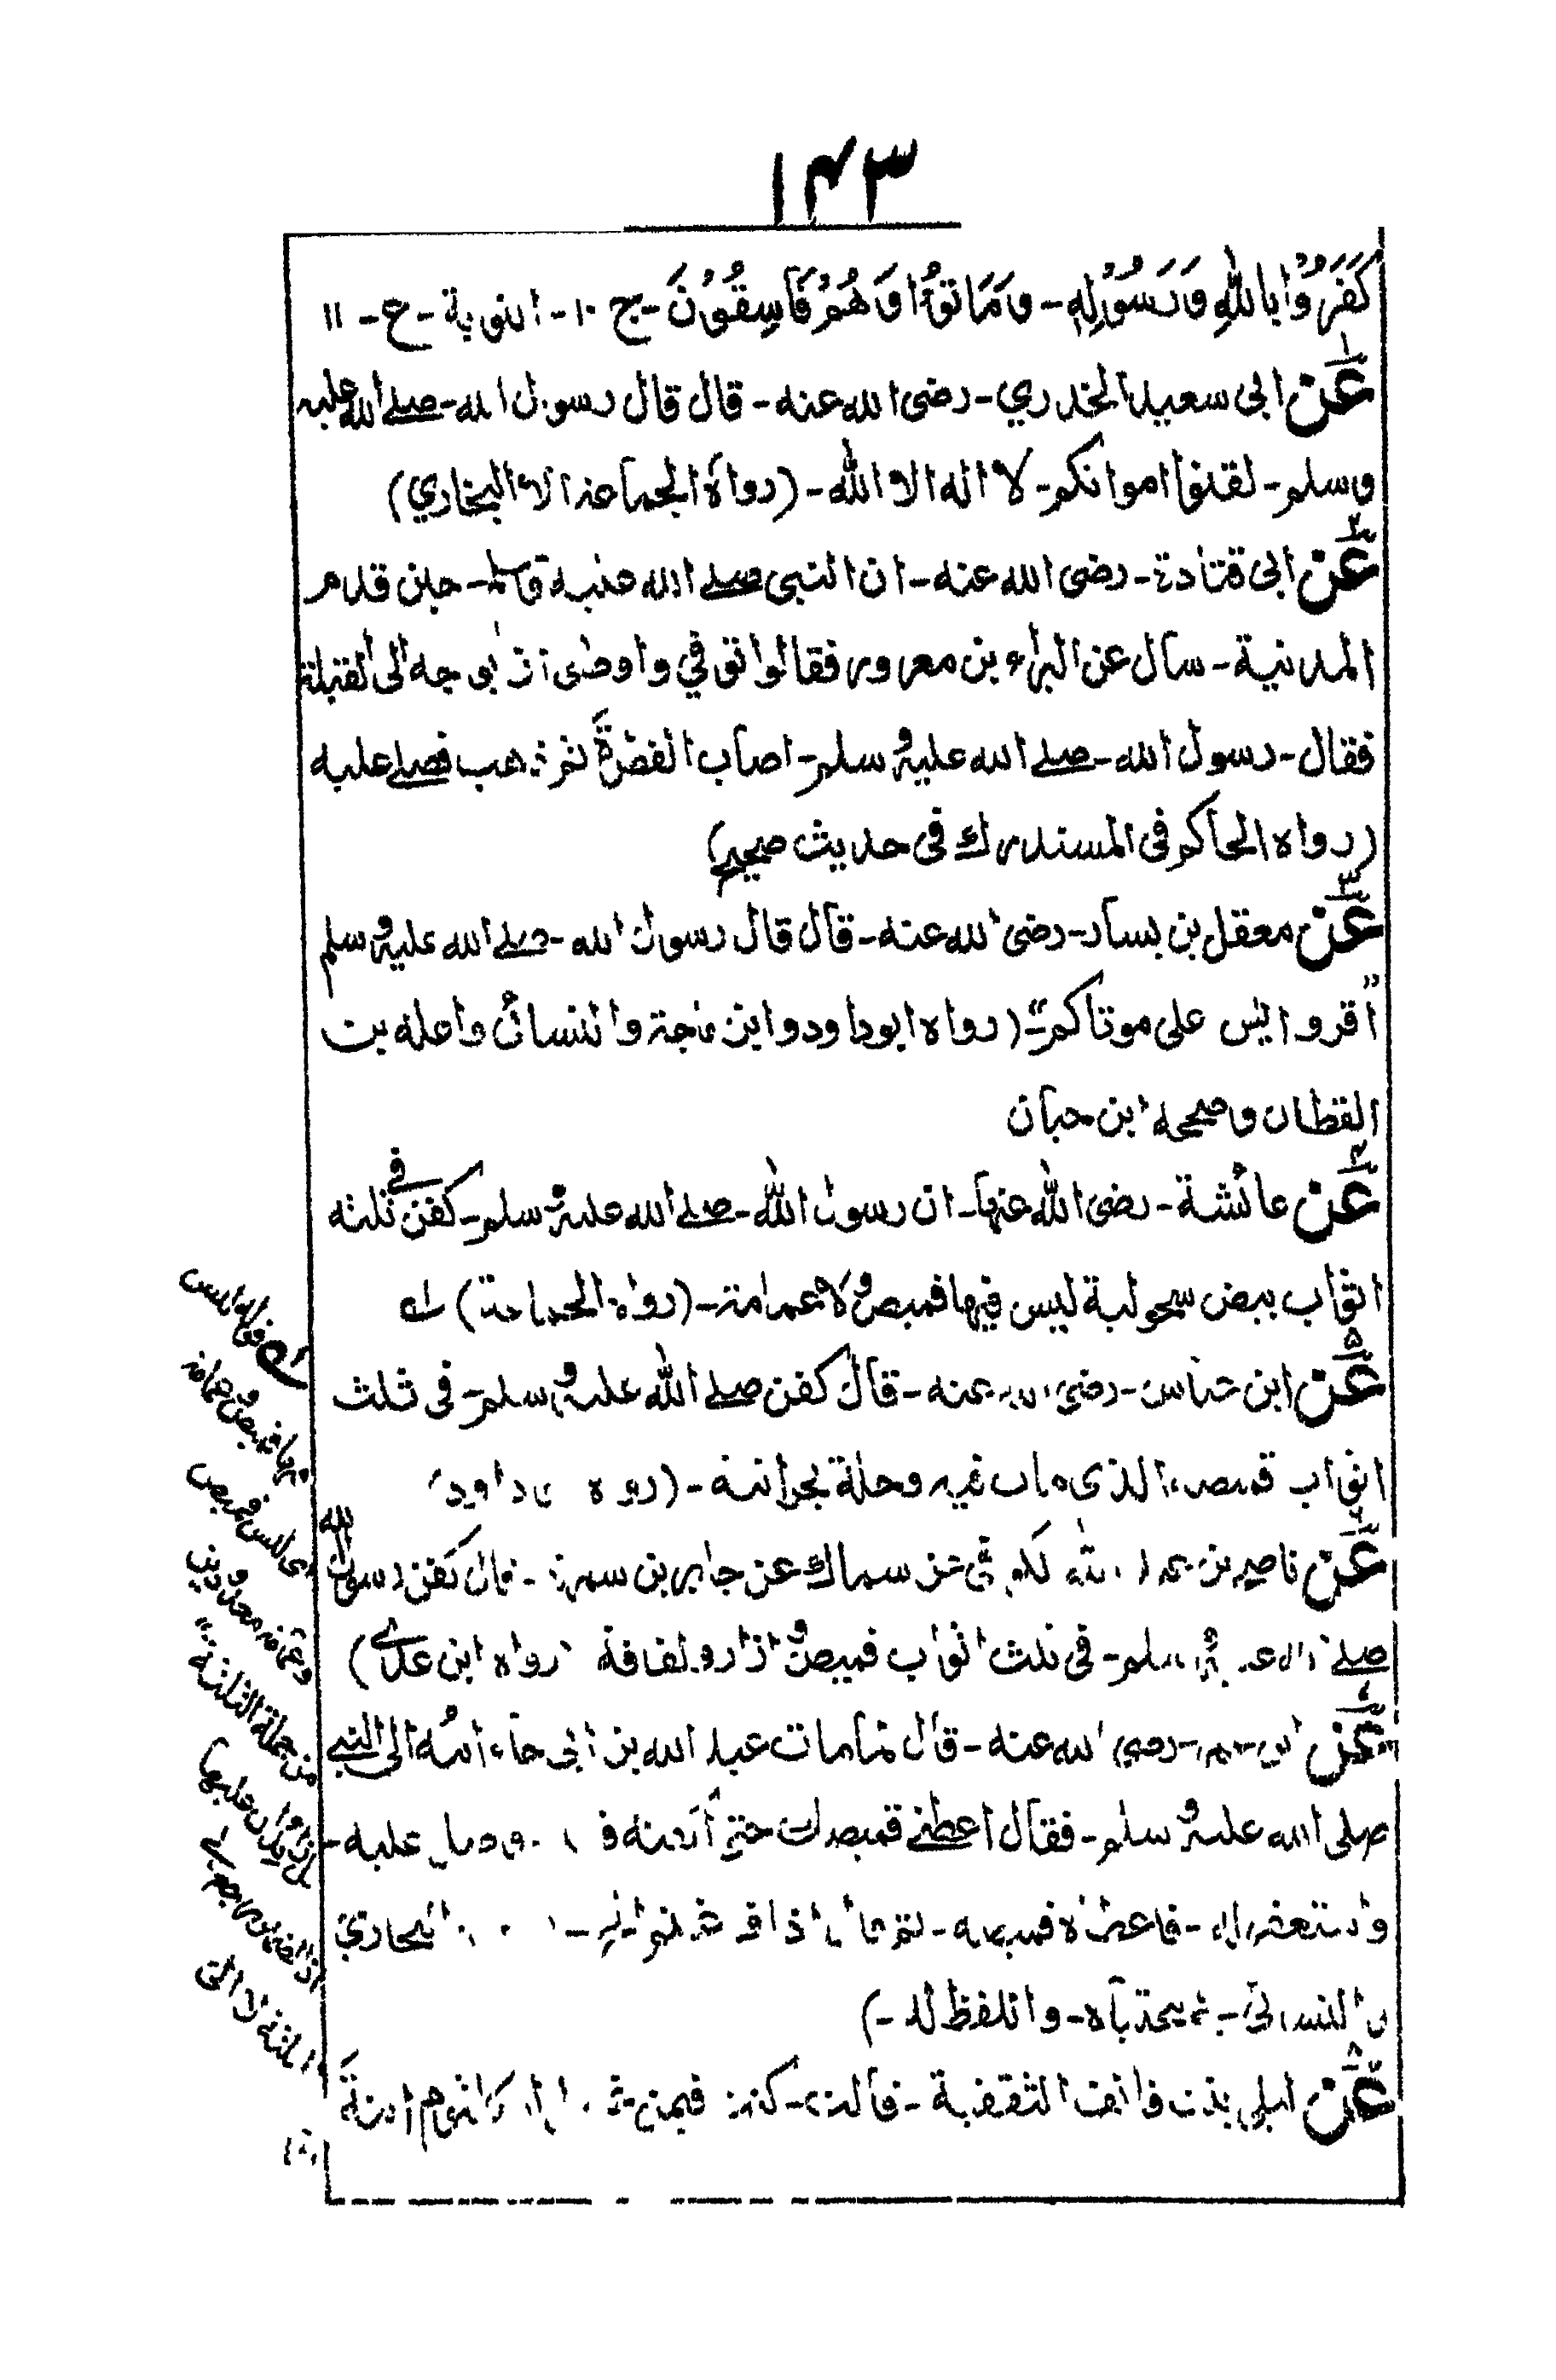 ١٤٣
كَفَرُوْا بِاللّٰهِ وَرَسُوْلِهٖ - وَمَاتُوْا وَهُمْ فَاسِقُوْنَ - ج ١٠ - التوبة - ع - ١١
١ عن ابى سعيد الخدري - رضى الله عنه - قال قال رسول الله - صلے الله عليه
وسلم - لقنوا امواتكم - لا اله الا الله - (رواه الجماعة الا البخاري)
٢ عن ابى قتادة - رضى الله عنه - ان النبى صلے الله عليه وسلم - حين قدم
المدينة - سال عن البراء بن معرور فقالوا توفي واوصى ان يوجه الى القبلة
فقال - رسول الله - صلے الله عليه وسلم - اصاب الفطرة ثم ذهب فصلے عليه
(رواه الحاكم فى المستدرك فى حديث صحيح)
٣ عن معقل بن يسار - رضى الله عنه - قال قال رسول الله - صلے الله عليه وسلم
"اقروا يٰس على موتاكم" - (رواه ابوداود وابن ماجة والنسائى واعله بن
القطان وصححه ابن حبان
٤ عن عائشة - رضى الله عنها - ان رسول الله - صلے الله عليه وسلم - كفن في ثلثه
اثواب بيض سحولية ليس فيها قميص ولا عمامة - (رواه الجماعة) له
٥ عن ابن عباس - رضى الله عنه - قال كفن صلے الله عليه وسلم - فى ثلث
اثواب قميصه الذى مات فيه وحلة نجرانية - (رواه ابو داود)
٦ عن ناصح بن عبد الله الكوفى عن سماك عن جابر بن سمرة - قال كفن رسول الله
صلے الله عليه وسلم - فى ثلث اثواب قميص وازار ولفافة (رواه ابن عدي)
٧ عن ابن عمر - رضي الله عنه - قال لما مات عبد الله بن ابى جاء ابنه الى النبي
صلى الله عليه وسلم - فقال اعطنے قميصك حتى اكفنه فيه وصل عليه -
واستغفر له - فاعطاه قميصه - ثم قال اذا فرغتم البخاري
والنسائى - واللفظ له -)
٨ عن ليلى بنت قانف الثقفية - قالت - كنت فيمن ام كلثوم ابنة
له قوله ليس
فيها قميص ولا عمامة
اى ليس قميص
وعمامة معدودين
من جملة الثلثة